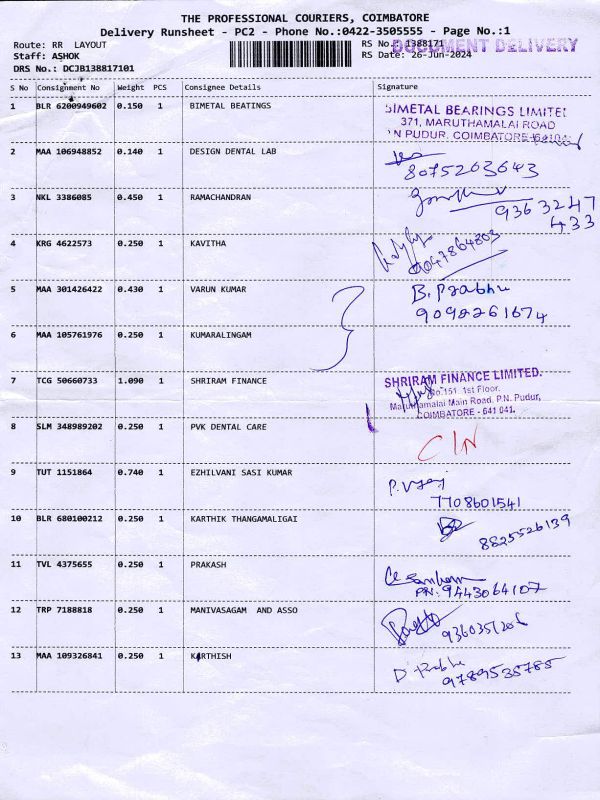 THE PROFESSIONAL COURIERS, COIMBATORE
Delivery Runsheet - PC2 - Phone No.:0422-3505555 - Page No.:1
Route: RR LAYOUT RS No.: 1388171 DOCUMENT DELIVERY
Staff: ASHOK RS Date: 26-Jun-2024
DRS No.: DCJB138817101
S No Consignment No Weight PCS Consignee Details Signature
1 BLR 6200949602 0.150 1 BIMETAL BEATINGS BIMETAL BEARINGS LIMITED
371, MARUTHAMALAI ROAD
P.N PUDUR, COIMBATORE-641041
2 MAA 106948852 0.140 1 DESIGN DENTAL LAB
8075263643
3 NKL 3386085 0.450 1 RAMACHANDRAN
9363247
433
4 KRG 4622573 0.250 1 KAVITHA
9047864803
5 MAA 301426422 0.430 1 VARUN KUMAR B. Prabhu
9098261674
6 MAA 105761976 0.250 1 KUMARALINGAM
7 TCG 50660733 1.090 1 SHRIRAM FINANCE SHRIRAM FINANCE LIMITED.
No.151, 1st Floor,
Maruthamalai Main Road, P.N. Pudur,
COIMBATORE - 641 041.
8 SLM 348989202 0.250 1 PVK DENTAL CARE
9 TUT 1151864 0.740 1 EZHILVANI SASI KUMAR
7708601541
10 BLR 680100212 0.250 1 KARTHIK THANGAMALIGAI
8825526139
11 TVL 4375655 0.250 1 PRAKASH
PN: 9443064107
12 TRP 7188818 0.250 1 MANIVASAGAM AND ASSO
13 MAA 109326841 0.250 1 KARTHISH D. Prabhu
9789535785